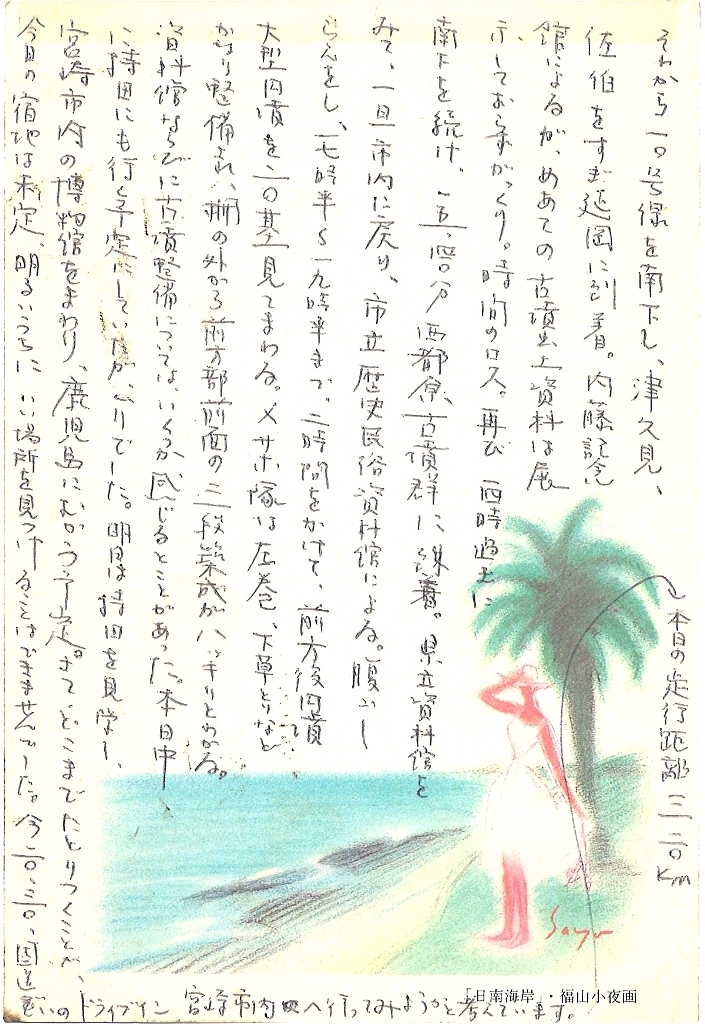 それから一〇号線を南下し、津久見、
佐伯をすぎ延岡に到着。内藤記念
館によるが、めあての古墳出土資料は展
示しておらずがっくり。時間のロス。再び 四時過ぎに
南下を続け、一五、四〇分西都原古墳群に到着。県立資料館を
みて、一旦市内に戻り、市立歴史民俗資料館による。腹ごし
らえをし、一七時半〜一九時半まで、二時間をかけて、前方後円墳
大型円墳を二〇基見てまわる。メサホ塚は圧巻、下草とりなど
かなり整備され、柵の外から前方部前面の三段築成がハッキリとわかる。
資料館ならびに古墳整備については、いくつか感じるところがあった。本日中
に持田にも行く予定にしていたが、ムリでした。明日は持田を見学し、
宮崎市内の博物館をまわり、鹿児島にむかう予定。さてどこまでたどりつくことか、
今日の宿地は未定、明るいうちにいい場所を見つけることはできませんでした。今二〇、三〇、国道
ぞいのドライブイン 宮崎市内へ行ってみようかと考えています。
本日の走行距離 三二〇Km
Sayo
「日南海岸」・福山小夜画